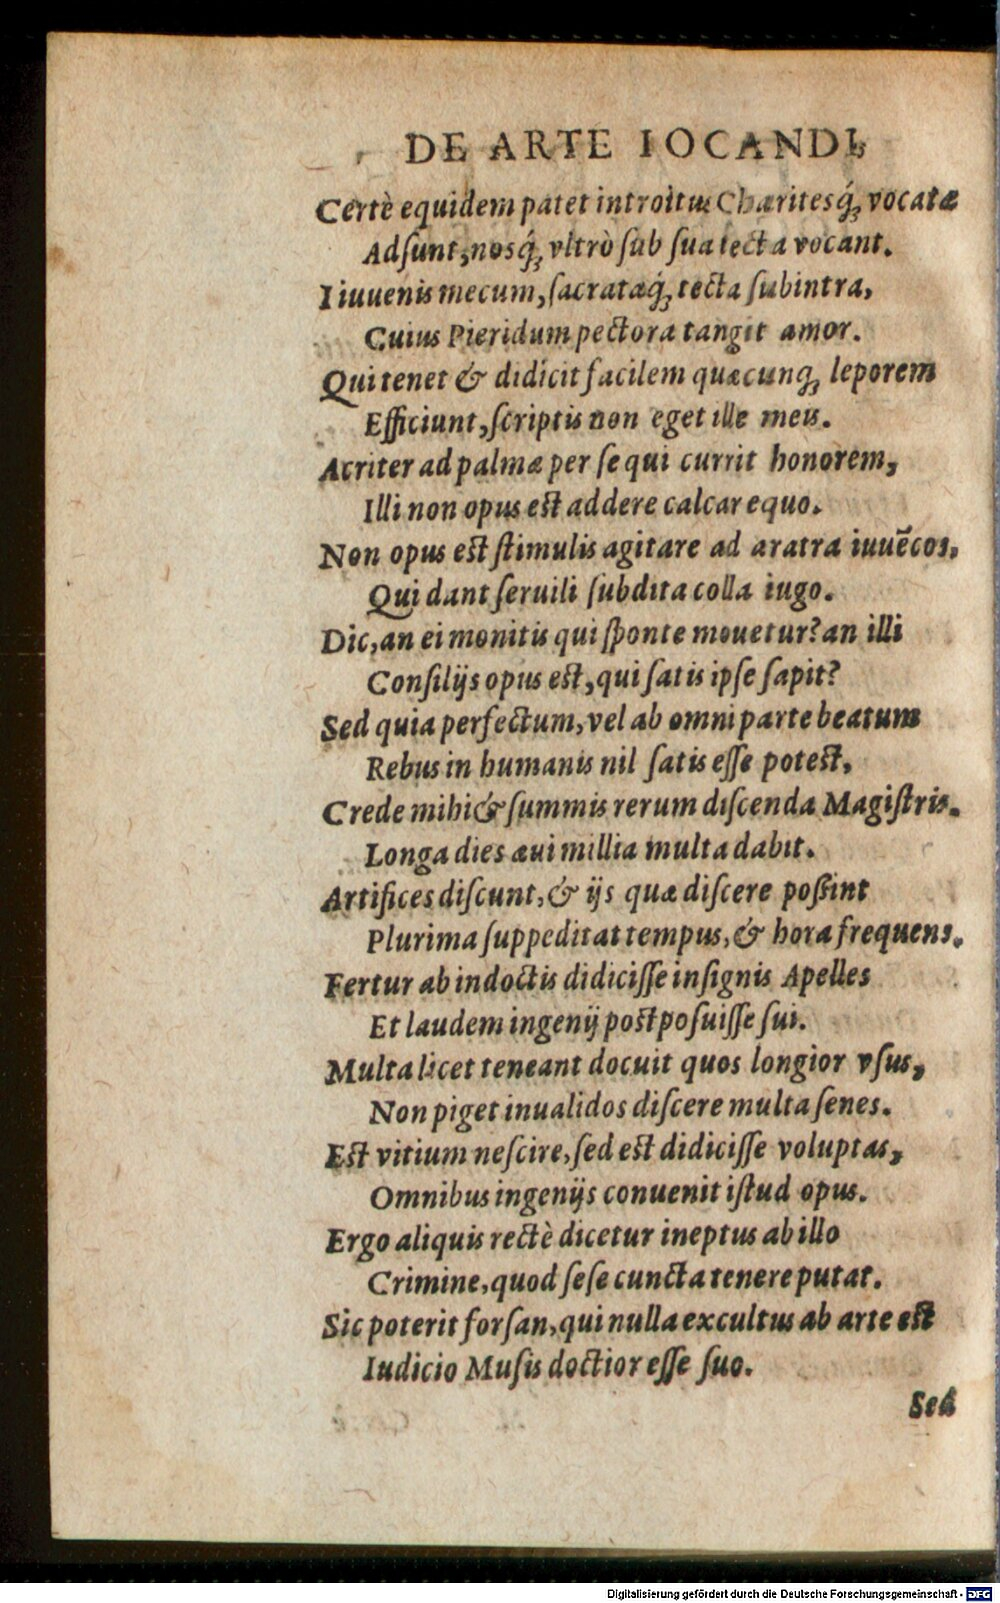 DE ARTE IOCANDI,
Certè equidem patet introitus Charitesq́; vocatæ
Adſunt, nosq́; vltrò ſub ſua tecta vocant.
I iuuenis mecum, ſacrataq́; tecta ſubintra,
Cuius Pieridum pectora tangit amor.
Qui tenet & didicit facilem quæcunq; leporem
Efficiunt, ſcriptis non eget ille meis.
Acriter ad palmæ per ſe qui currit honorem,
Illi non opus eſt addere calcar equo.
Non opus eſt ſtimulis agitare ad aratra iuuēcos,
Qui dant ſeruili ſubdita colla iugo.
Dic, an ei monitis qui ſponte mouetur? an illi
Conſilijs opus eſt, qui ſatis ipſe ſapit?
Sed quia perfectum, vel ab omni parte beatum
Rebus in humanis nil ſatis eſſe poteſt,
Crede mihi & ſummis rerum diſcenda Magiſtris.
Longa dies æui millia multa dabit.
Artifices diſcunt, & ijs quæ diſcere poſsint
Plurima ſuppeditat tempus, & hora frequens.
Fertur ab indoctis didiciſſe inſignis Apelles
Et laudem ingenij poſtpoſuiſſe ſui.
Multa licet teneant docuit quos longior vſus,
Non piget inualidos diſcere multa ſenes.
Eſt vitium neſcire, ſed eſt didiciſſe voluptas,
Omnibus ingenijs conuenit iſtud opus.
Ergo aliquis rectè dicetur ineptus ab illo
Crimine, quod ſeſe cuncta tenere putat.
Sic poterit forſan, qui nulla excultus ab arte eſt
Iudicio Muſis doctior eſſe ſuo.
Sed
Digitalisierung gefördert durch die Deutsche Forschungsgemeinschaft - DFG